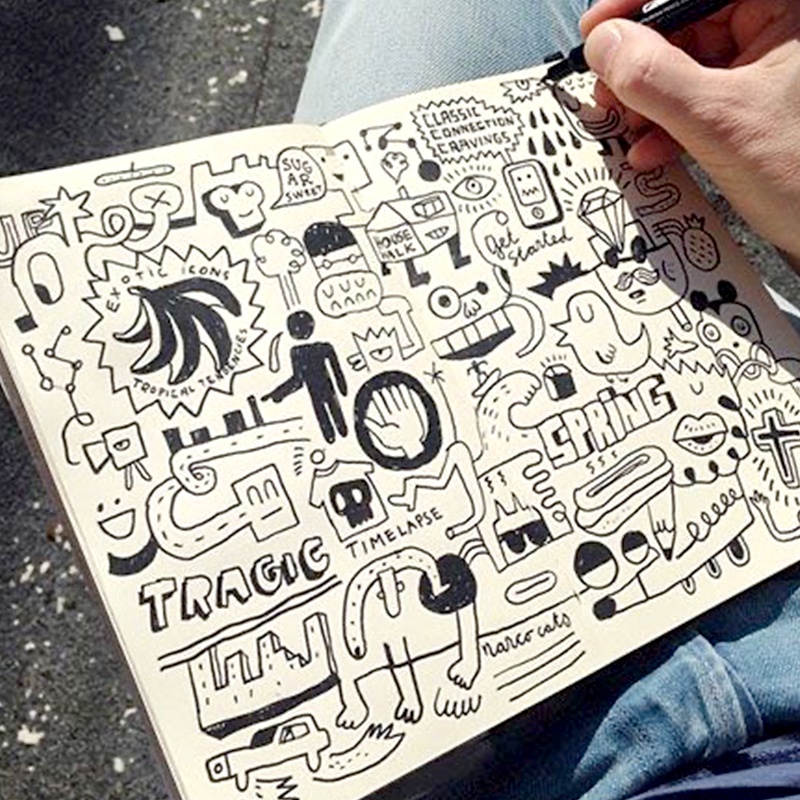 UP
SUG
AR
SWEET
CLASSIC
CONNECTION
CRAVINGS
HOUSE
WALK
Get
Started
EXOTIC ICONS
TROPICAL TENDENCIES
SPRING
TIMELAPSE
TRAGIC
narco cats